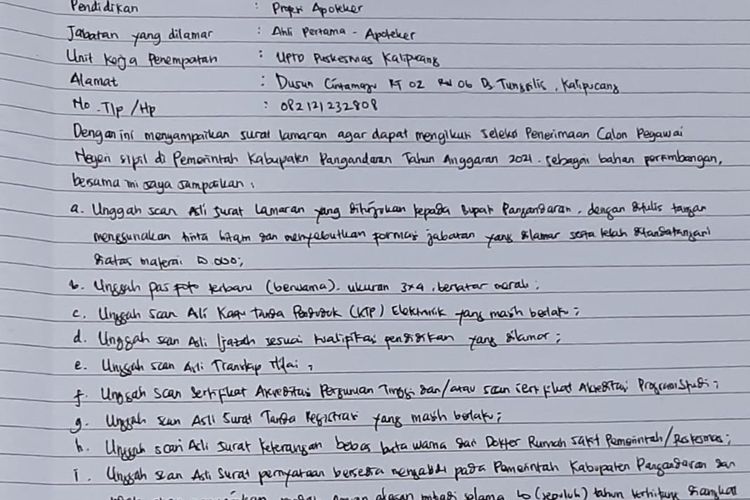 Pendidikan : Profesi Apoteker
Jabatan yang dilamar : Ahli Pertama - Apoteker
Unit Kerja Penempatan : UPTD Puskesmas Kalipucang
Alamat : Dusun RT 02 RW 06 Ds Tunggilis, Kalipucang
No. Tlp / Hp : 082121232808
Dengan ini menyampaikan surat lamaran agar dapat mengikuti seleksi Penerimaan Calon Pegawai
Negeri Sipil di Pemerintah Kabupaten Pangandaran Tahun Anggaran 2021. sebagai bahan pertimbangan,
bersama ini saya sampaikan :
a. Unggah scan Asli surat Lamaran yang ditujukan kepada Bupati Pangandaran, dengan ditulis tangan
menggunakan tinta hitam dan menyebutkan formasi jabatan yang dilamar serta telah ditandatangani
diatas materai 10.000;
b. Unggah pas foto terbaru (berwarna). ukuran 3x4, berlatar merah;
c. Unggah scan Asli Kartu Tanda Penduduk (KTP) Elektronik yang masih berlaku;
d. Unggah scan Asli Ijazah sesuai kualifikasi pendidikan yang dilamar;
e. Unggah scan Asli Transkip Nilai;
f. Unggah scan sertifikat Akreditasi Perguruan Tinggi dan/atau scan sertifikat Akreditasi Program Studi;
g. Unggah scan Asli Surat Tanda Registrasi yang masih berlaku;
h. Unggah scan Asli Surat keterangan bebas buta warna dari Dokter Rumah sakit Pemerintah/Puskesmas;
i. Unggah scan Asli Surat pernyataan bersedia mengabdi pada Pemerintah Kabupaten Pangandaran dan
alasan pribadi selama 10 (sepuluh) tahun terhitung diangkat